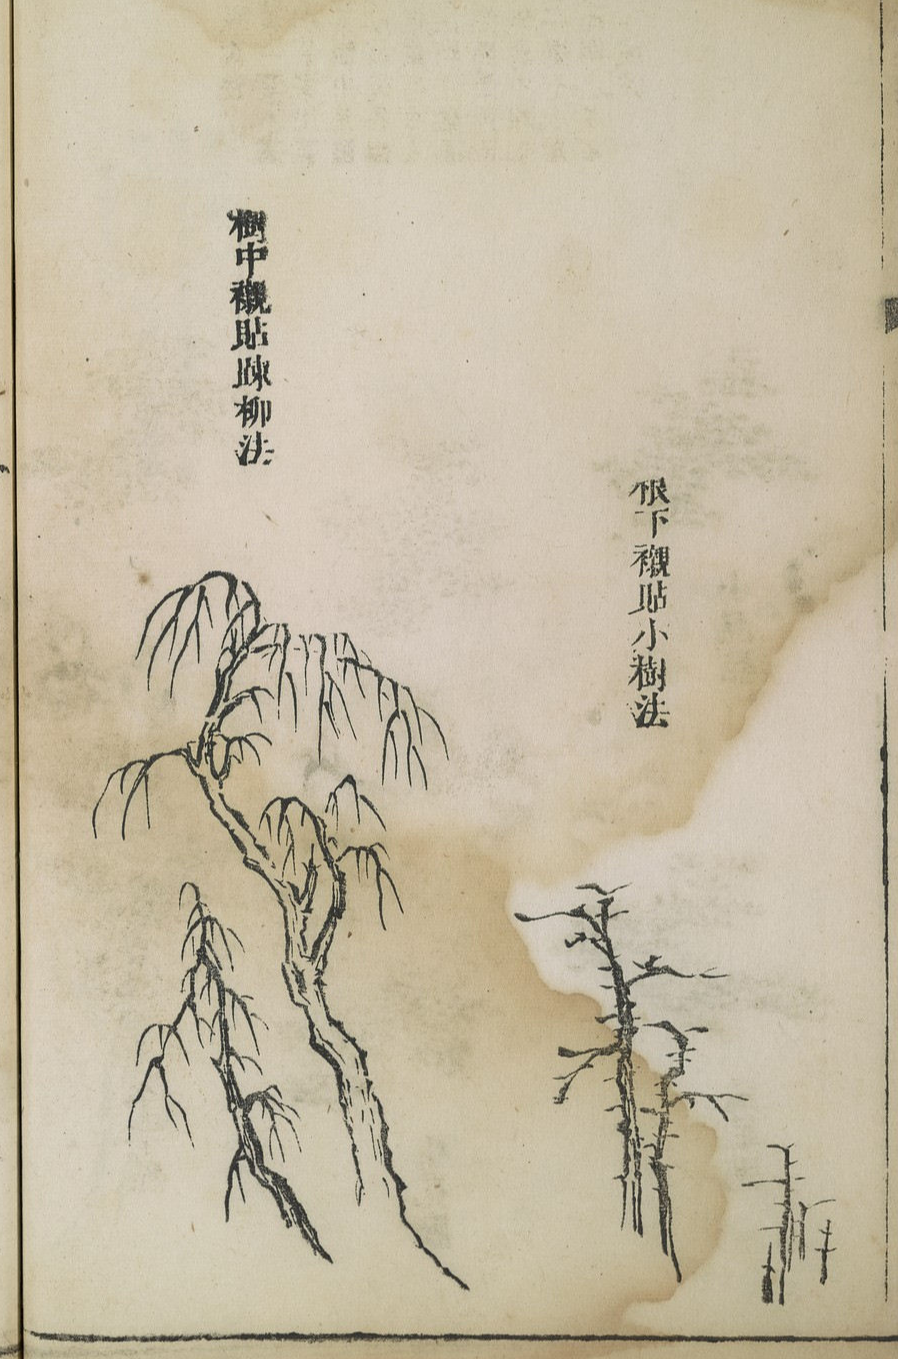 根下襯貼小樹法
樹中襯貼疎柳法